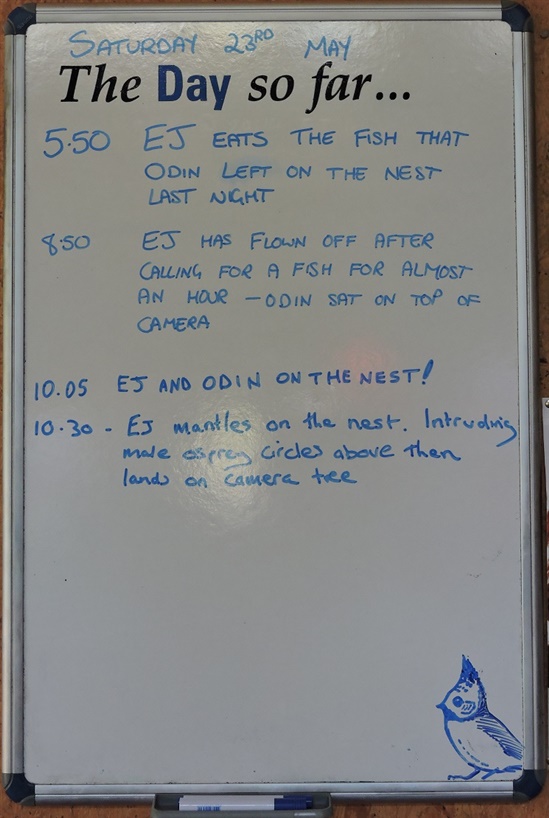 SATURDAY 23RD MAY
The Day so far...
5.50 EJ EATS THE FISH THAT
ODIN LEFT ON THE NEST
LAST NIGHT
8.50 EJ HAS FLOWN OFF AFTER
CALLING FOR A FISH FOR ALMOST
AN HOUR - ODIN SAT ON TOP OF
CAMERA
10.05 EJ AND ODIN ON THE NEST!
10.30 - EJ mantles on the nest. Intruding
male osprey circles above then
lands on camera tree